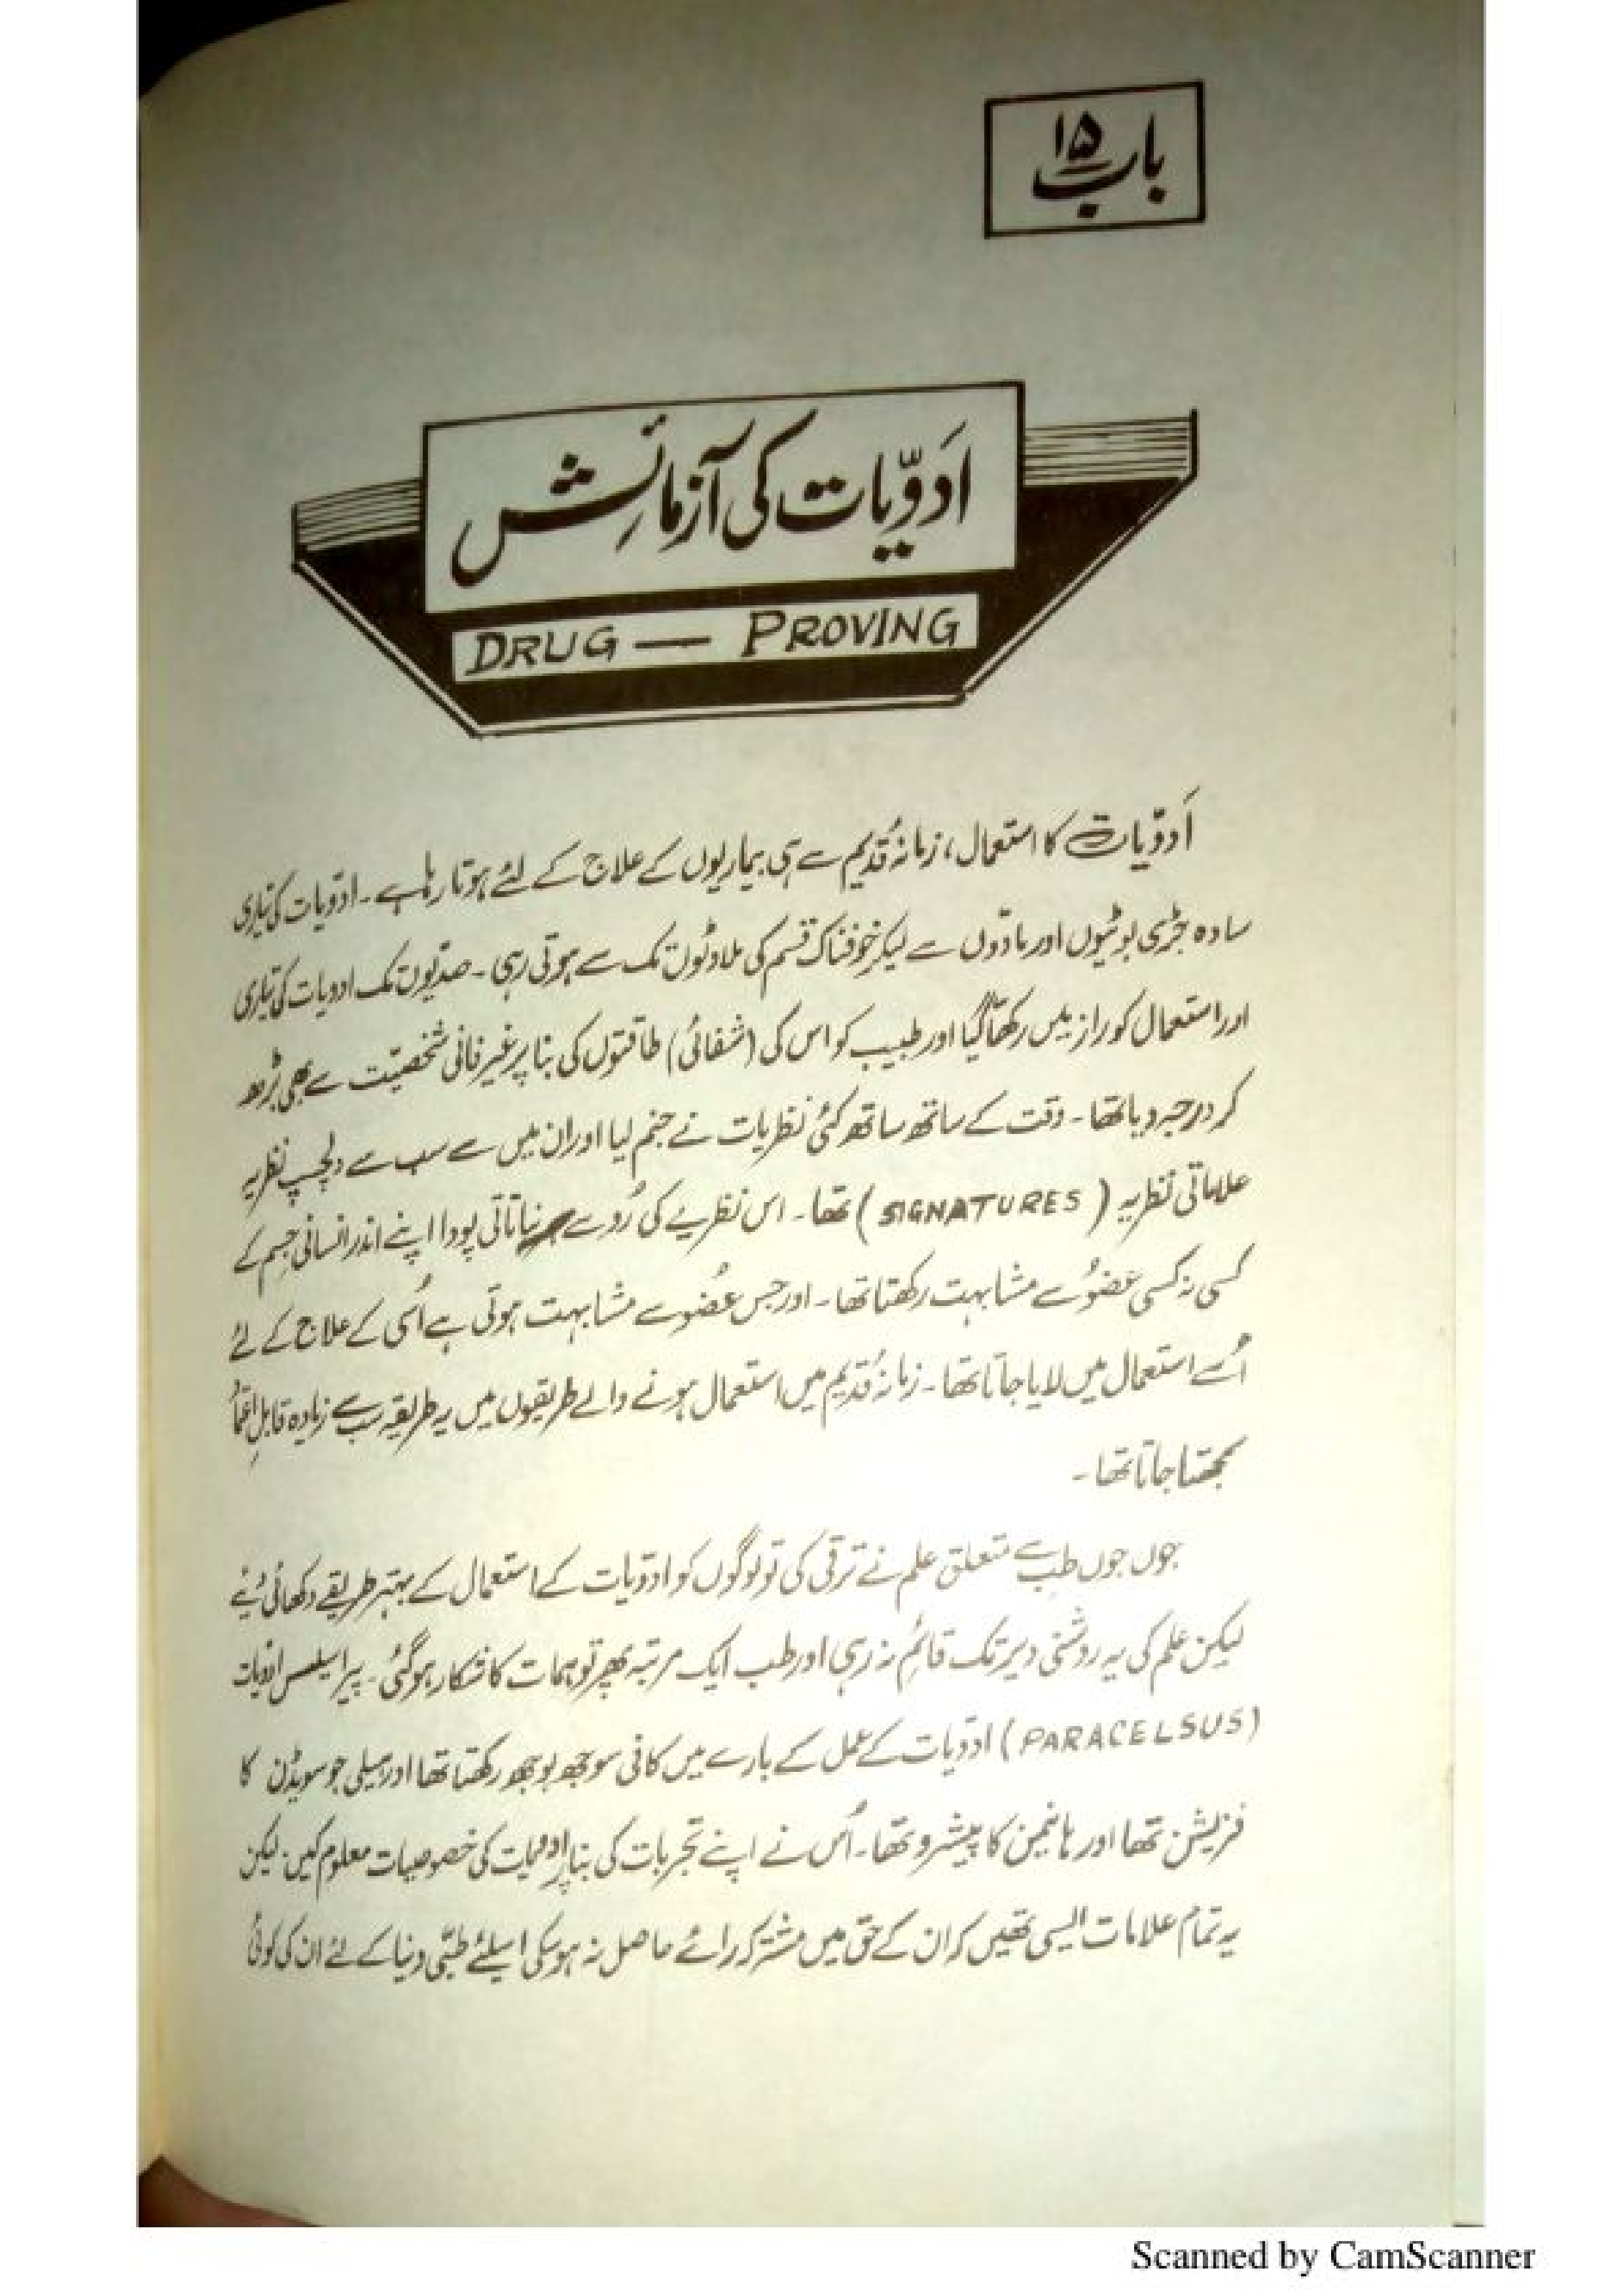 باب ۱۵
ادَوّیات کی آزمائِش
DRUG — PROVING
اَدوّیات کا استعمال، زمانہ قُدیم سے ہی بیماریوں کے علاج کے لئے ہوتا رہا ہے۔ ادوّیات کی تیاری
سادہ جڑی بوٹیوں اور مادّوں سے لیکر خوفناک قسم کی ملاوٹوں تک سے ہوتی رہی۔ صدیوں تک ادویات کی تیاری
اور استعمال کو راز میں رکھا گیا اور طبیب کو اس کی (شفائی) طاقتوں کی بنا پر غیر فانی شخصیّت سے بھی بڑھ
کر درجہ دیا تھا۔ وقت کے ساتھ ساتھ کئی نظریات نے جنم لیا اور ان میں سے سب سے دلچسپ نظریہ
علاماتی نظریہ (SIGNATURES) تھا۔ اس نظریے کی رُو سے نباتاتی پودا اپنے اندر انسانی جسم کے
کسی نہ کسی عضوُ سے مشابہت رکھتا تھا۔ اور جس عُضو سے مشابہت ہوتی ہے اُسی کے علاج کے لئے
اُسے استعمال میں لایا جاتا تھا۔ زمانہ قُدیم میں استعمال ہونے والے طریقوں میں یہ طریقہ سب سے زیادہ قابلِ اعتماد
سمجھتا جاتا تھا۔
جوں جوں طِب سے متعلق علم نے ترقی کی تو لوگوں کو ادوّیات کے استعمال کے بہتر طریقے دکھائی دیئے
لیکن علم کی یہ روشنی دیر تک قائم نہ رہی اور طب ایک مرتبہ پھر توہمات کا شکار ہو گئی۔ پیراسیلسس ادویات
(PARACELSUS) ادوّیات کے عمل کے بارے میں کافی سوجھ بوجھ رکھتا تھا اور سیلی جو سویڈن کا
فزیشن تھا اور ہانیمن کا پیشرو تھا۔ اُس نے اپنے تجربات کی بنا پر ادویات کی خصوصیات معلوم کیں۔ لیکن
یہ تمام علامات ایسی تھیں کہ ان کے حق میں مشترکہ رائے حاصل نہ ہو سکی اسلئے طبّی دنیا کے لئے ان کی کوئی
Scanned by CamScanner